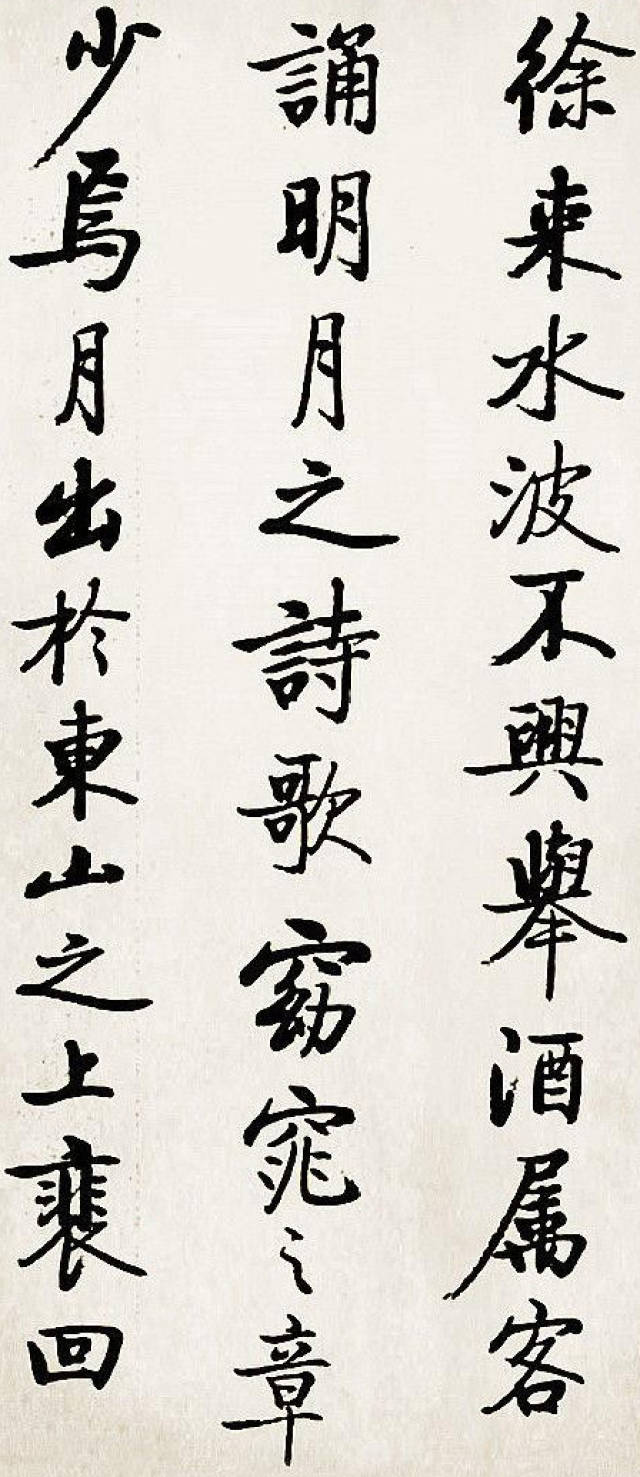 徐来水波不興舉酒属客
誦明月之詩歌窈窕之章
少焉月出於東山之上裴回